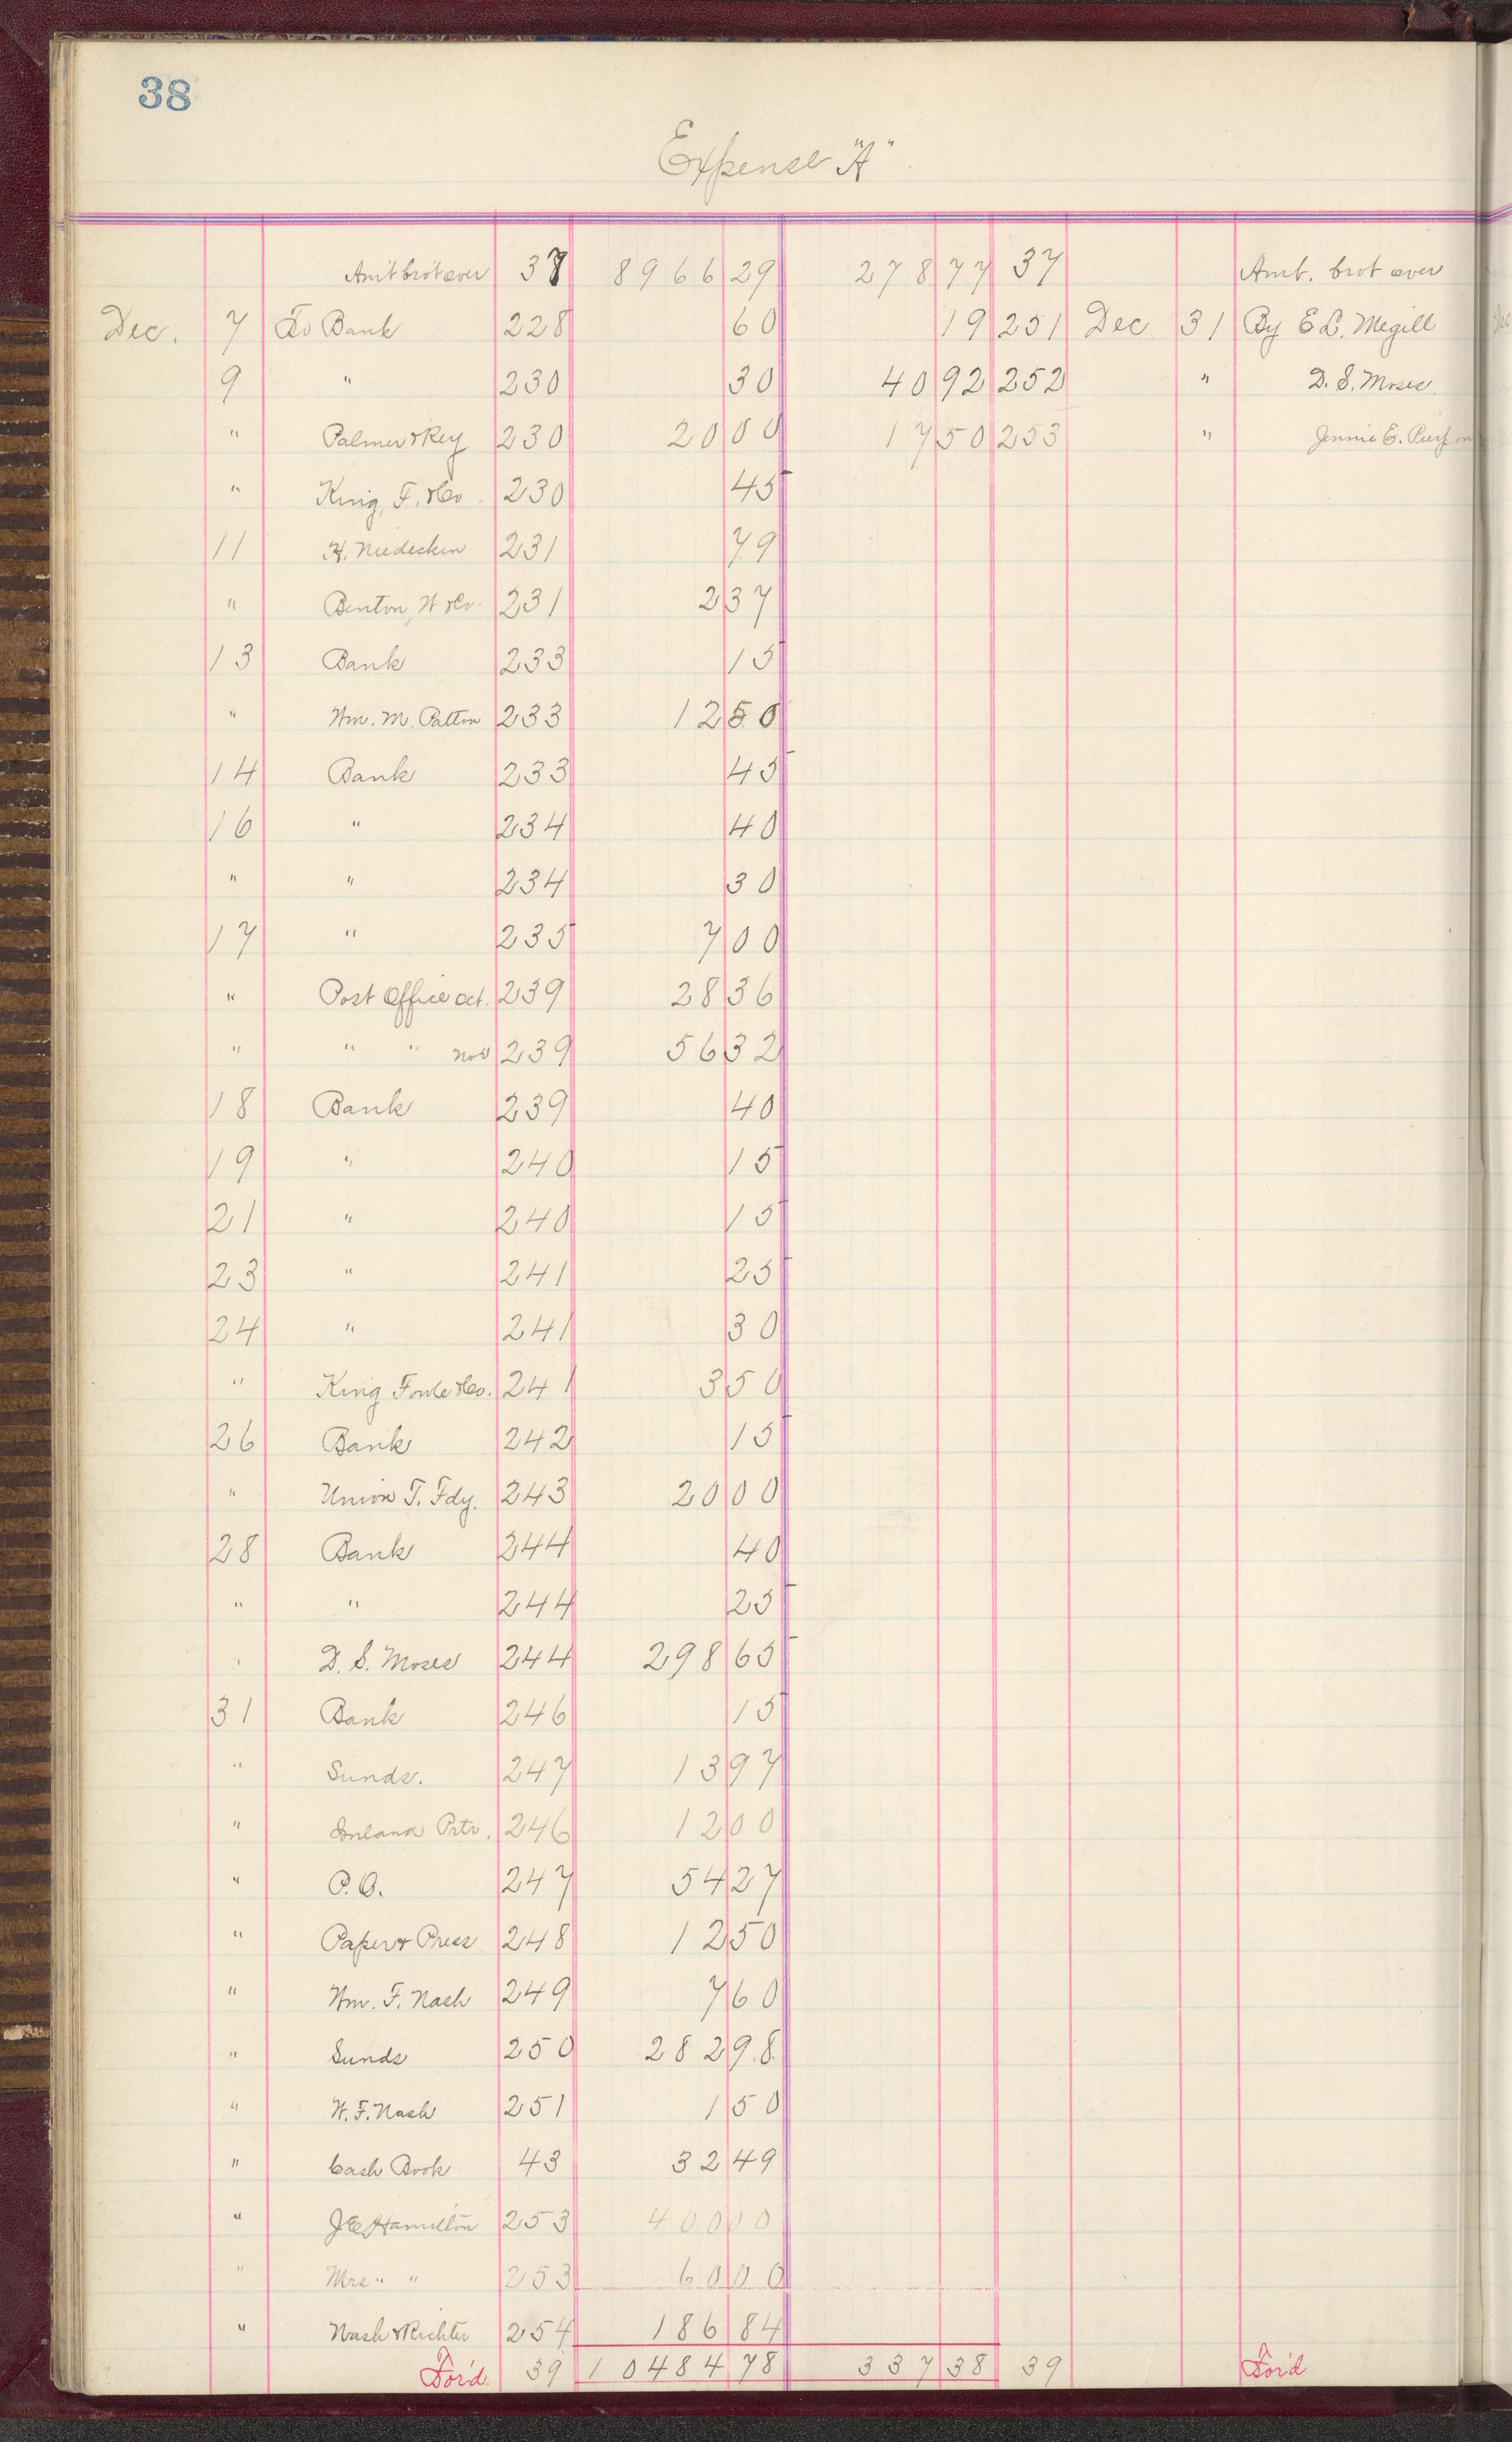 38
Expense "A"
Am't brot over 37 8966 29 278 77 37 Amt. brot over
Dec. 7 To Bank 228 60 19 251 Dec 31 By E L. Megill
9 " 230 30 40 92 252 " D. S. Moses.
" Palmer & Rey 230 20 00 17 50 253 " Jennie E. Pierson
" King, F. & Co. 230 45
11 H. Niedecken 231 79
" Benton, W & Co. 231 2 37
13 Bank 233 15
" Wm. M. Patton 233 12 50
14 Bank 233 45
16 " 234 40
" " 234 30
17 " 235 7 00
" Post Office Oct. 239 28 36
" " " Nov 239 56 32
18 Bank 239 40
19 " 240 15
21 " 240 15
23 " 241 25
24 " 241 30
" King Fowle & Co. 241 3 50
26 Bank 242 15
" Union T. Fdy. 243 20 00
28 Bank 244 40
" " 244 25
" D. S. Moses 244 298 65
31 Bank 246 15
" Sunds. 247 13 97
" Inland Prtr. 246 12 00
" P.O. 247 54 27
" Paper & Press 248 12 50
" Wm. F. Nash 249 7 60
" Sunds 250 282 98
" W. F. Nash 251 1 50
" Cash Book 43 32 49
" J E Hamilton 253 400 00
" Mrs " " 253 60 00
" Nash & Richter 254 186 84
For'd. 39 10484 78 337 38 39 For'd